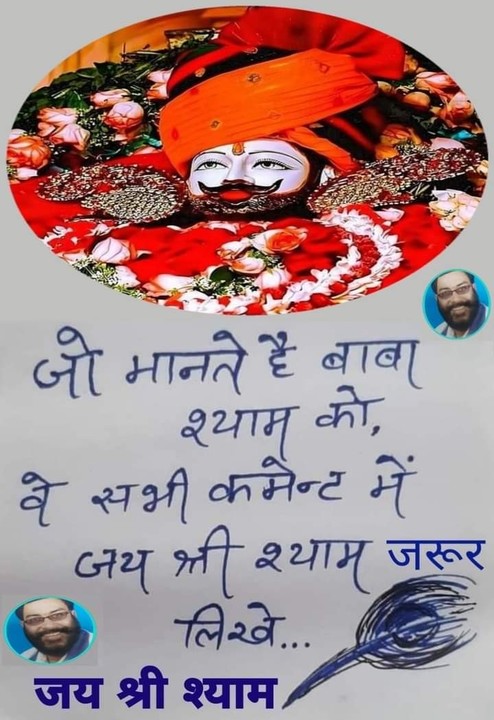 जो मानते है बाबा
श्याम को,
वे सभी कमेन्ट में
जय श्री श्याम जरूर
लिखे...
जय श्री श्याम